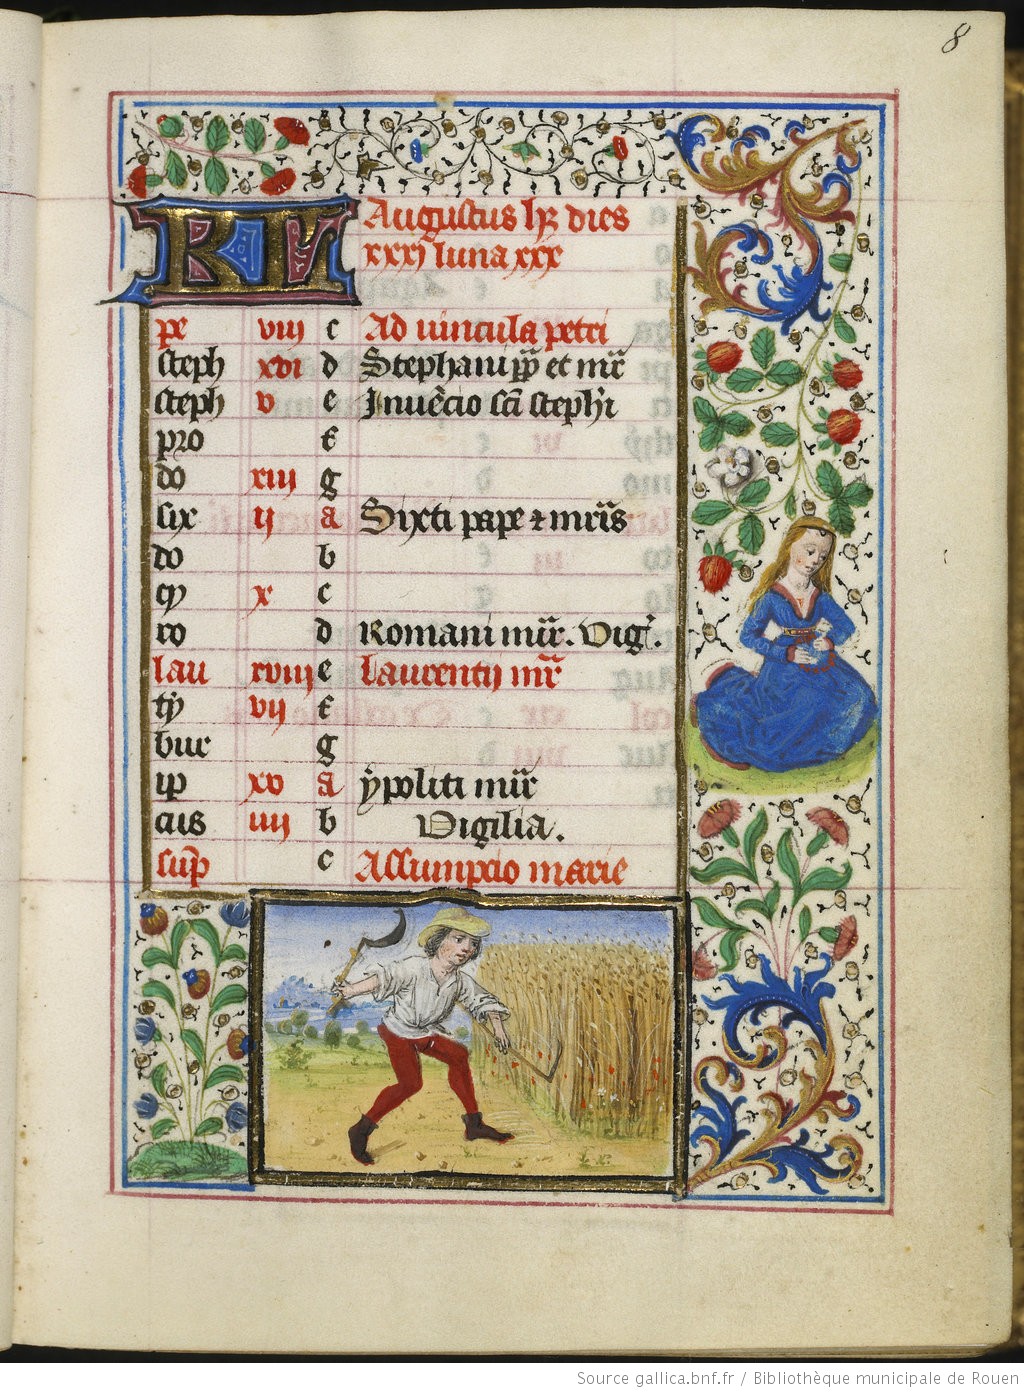 8
KL Augustus hꝫ dies
xxxj luna xxx
pe viij c Ad uincula petri
steph xvi d Stephani pp̄ et mr̄
steph v e Inuēcio scī steph'i
pro f
do xiij g
six ij a Sixti pape ⁊ mr̄is
do b
cy x c
ro d Romani mr̄. Vig'.
lau xviij e Laurentij mr̄
ty vij f
bur g
ip xv a ypoliti mr̄
cus iiij b Vigilia.
sup c Assumpcio marie
Source gallica.bnf.fr / Bibliothèque municipale de Rouen